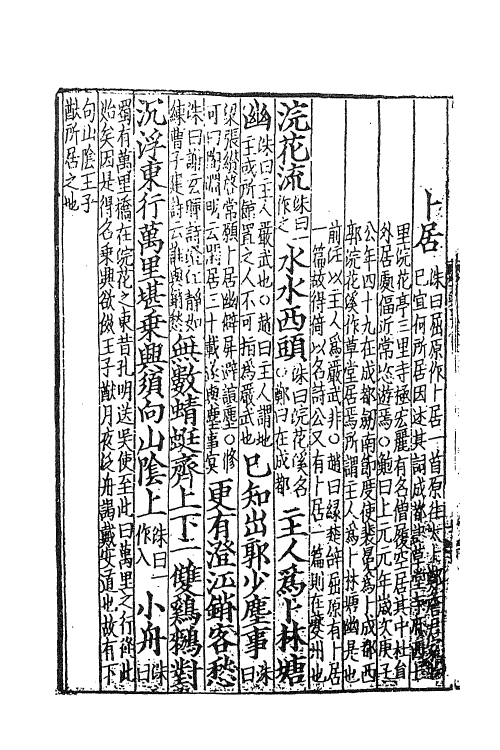 卜居
洙曰屈原作卜居一首原往
已宜何所居因述其詞成都記草堂寺府西七
里浣花亭三里寺極宏麗有名僧復空居其中杜自
外居處偪近常恣遊焉○鮑曰上元元年歲次庚子
公年四十九在成都劍南節度使裴冕為卜成都西
郭浣花溪作草堂居焉所謂主人為卜林塘幽是也
前注以主人為嚴武非○趙曰緑楚辭屈原有卜居
一篇故得倚以名詩公又有卜居一篇則在夔州也
浣花流洙曰一作之水水西頭洙曰浣花溪名○鄭曰在成都主人為卜林塘
幽洙曰主人嚴武也○趙曰主人謂地主或所館置之人不可指為嚴武也已知出郭少塵事洙曰
梁張纘啓常願卜居幽僻屏避諠塵○修可曰陶淵明云閑居三十載遂與塵事冥更有澄江銷客愁
洙曰謝玄暉詩澄江靜如練曹子建詩云誰與銷愁無數蜻蜓齊上下一雙鸂鶒對
沉浮東行萬里堪乗興須向山陰上洙曰一作入小舟洙曰
蜀有萬里橋在浣花之東昔孔明送吳使至此曰萬里之行從此
始矣因是得名乗興欲傚王子猷月夜泛舟謁戴安道也故有下
句山陰王子
猷所居之地